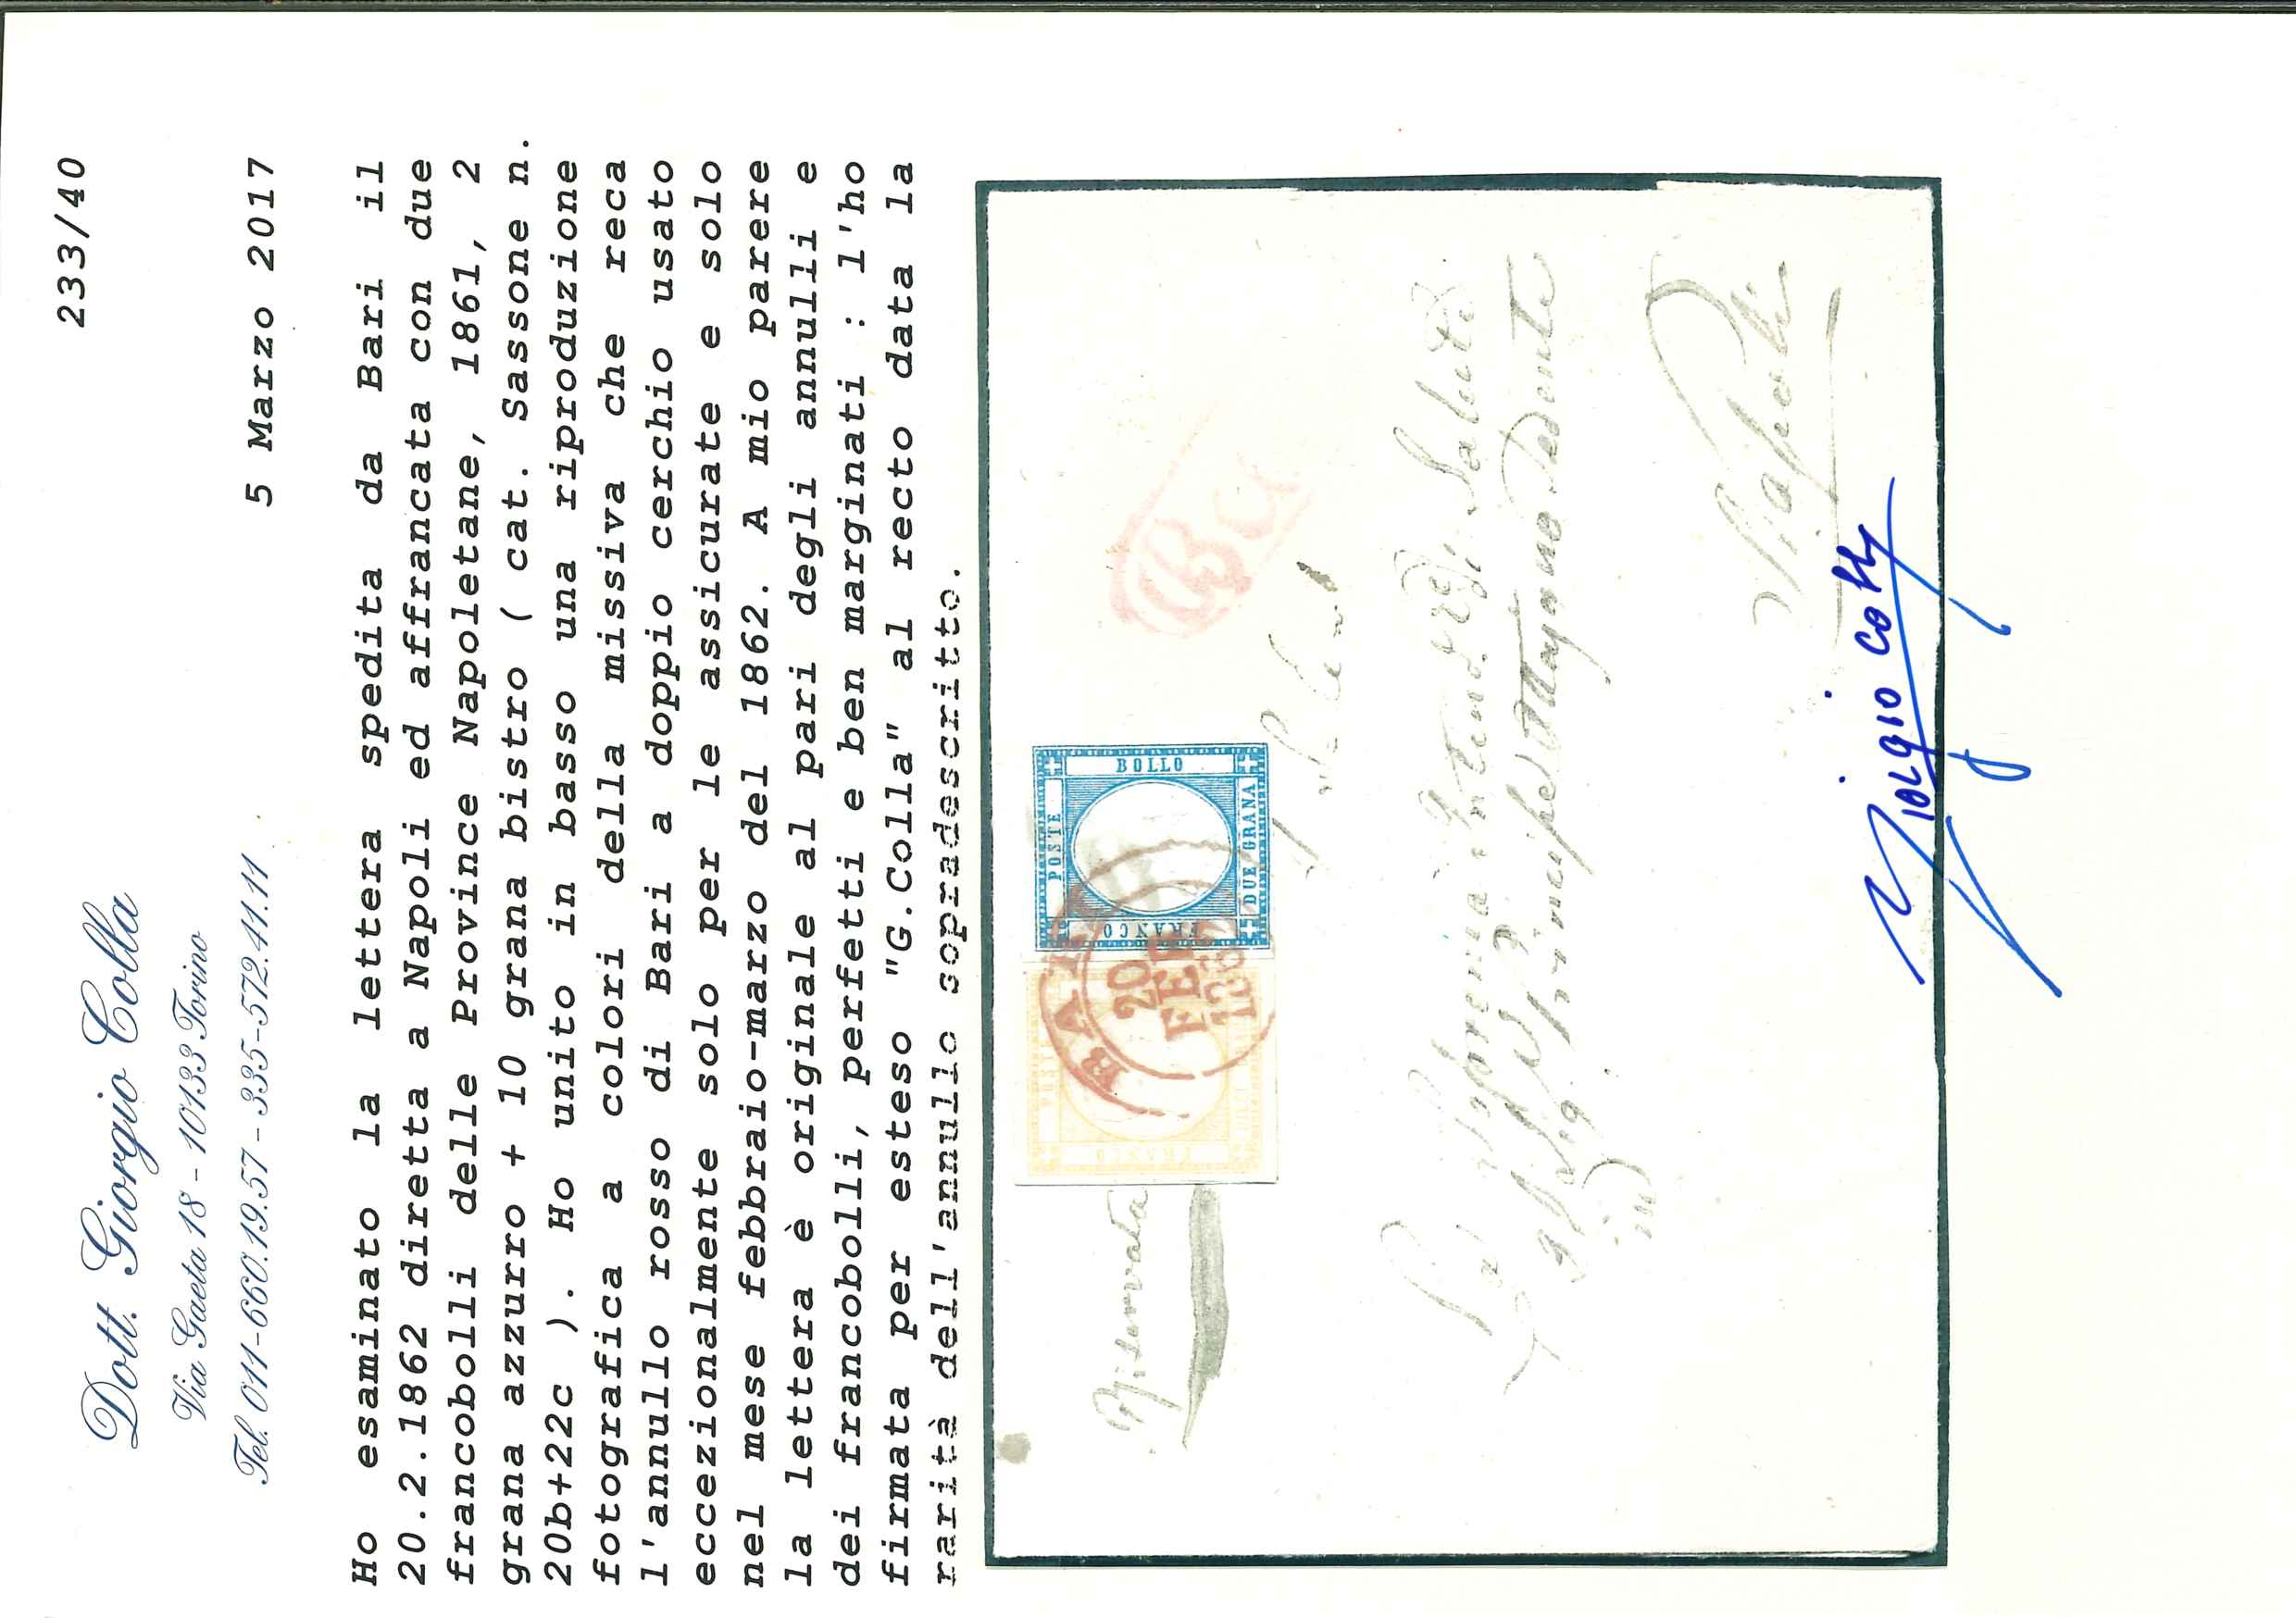 233/40
Dott. Giorgio Colla
Via Gaeta 18 - 10133 Torino
Tel. 011-660.19.57 - 335-572.41.11
5 Marzo 2017
Ho esaminato la lettera spedita da Bari il
20.2.1862 diretta a Napoli ed affrancata con due
francobolli delle Province Napoletane, 1861, 2
grana azzurro + 10 grana bistro ( cat. Sassone n.
20b+22c ). Ho unito in basso una riproduzione
fotografica a colori della missiva che reca
l'annullo rosso di Bari a doppio cerchio usato
eccezionalmente solo per le assicurate e solo
nel mese febbraio-marzo del 1862. A mio parere
la lettera è originale al pari degli annulli e
dei francobolli, perfetti e ben marginati : l'ho
firmata per esteso "G.Colla" al recto data la
rarità dell'annullo sopradescritto.
POSTE
FRANCO
BARI
20
FEB
POSTE
BOLLO
FRANCO
DUE GRANA
Riservata
Napoli
Giorgio Colla